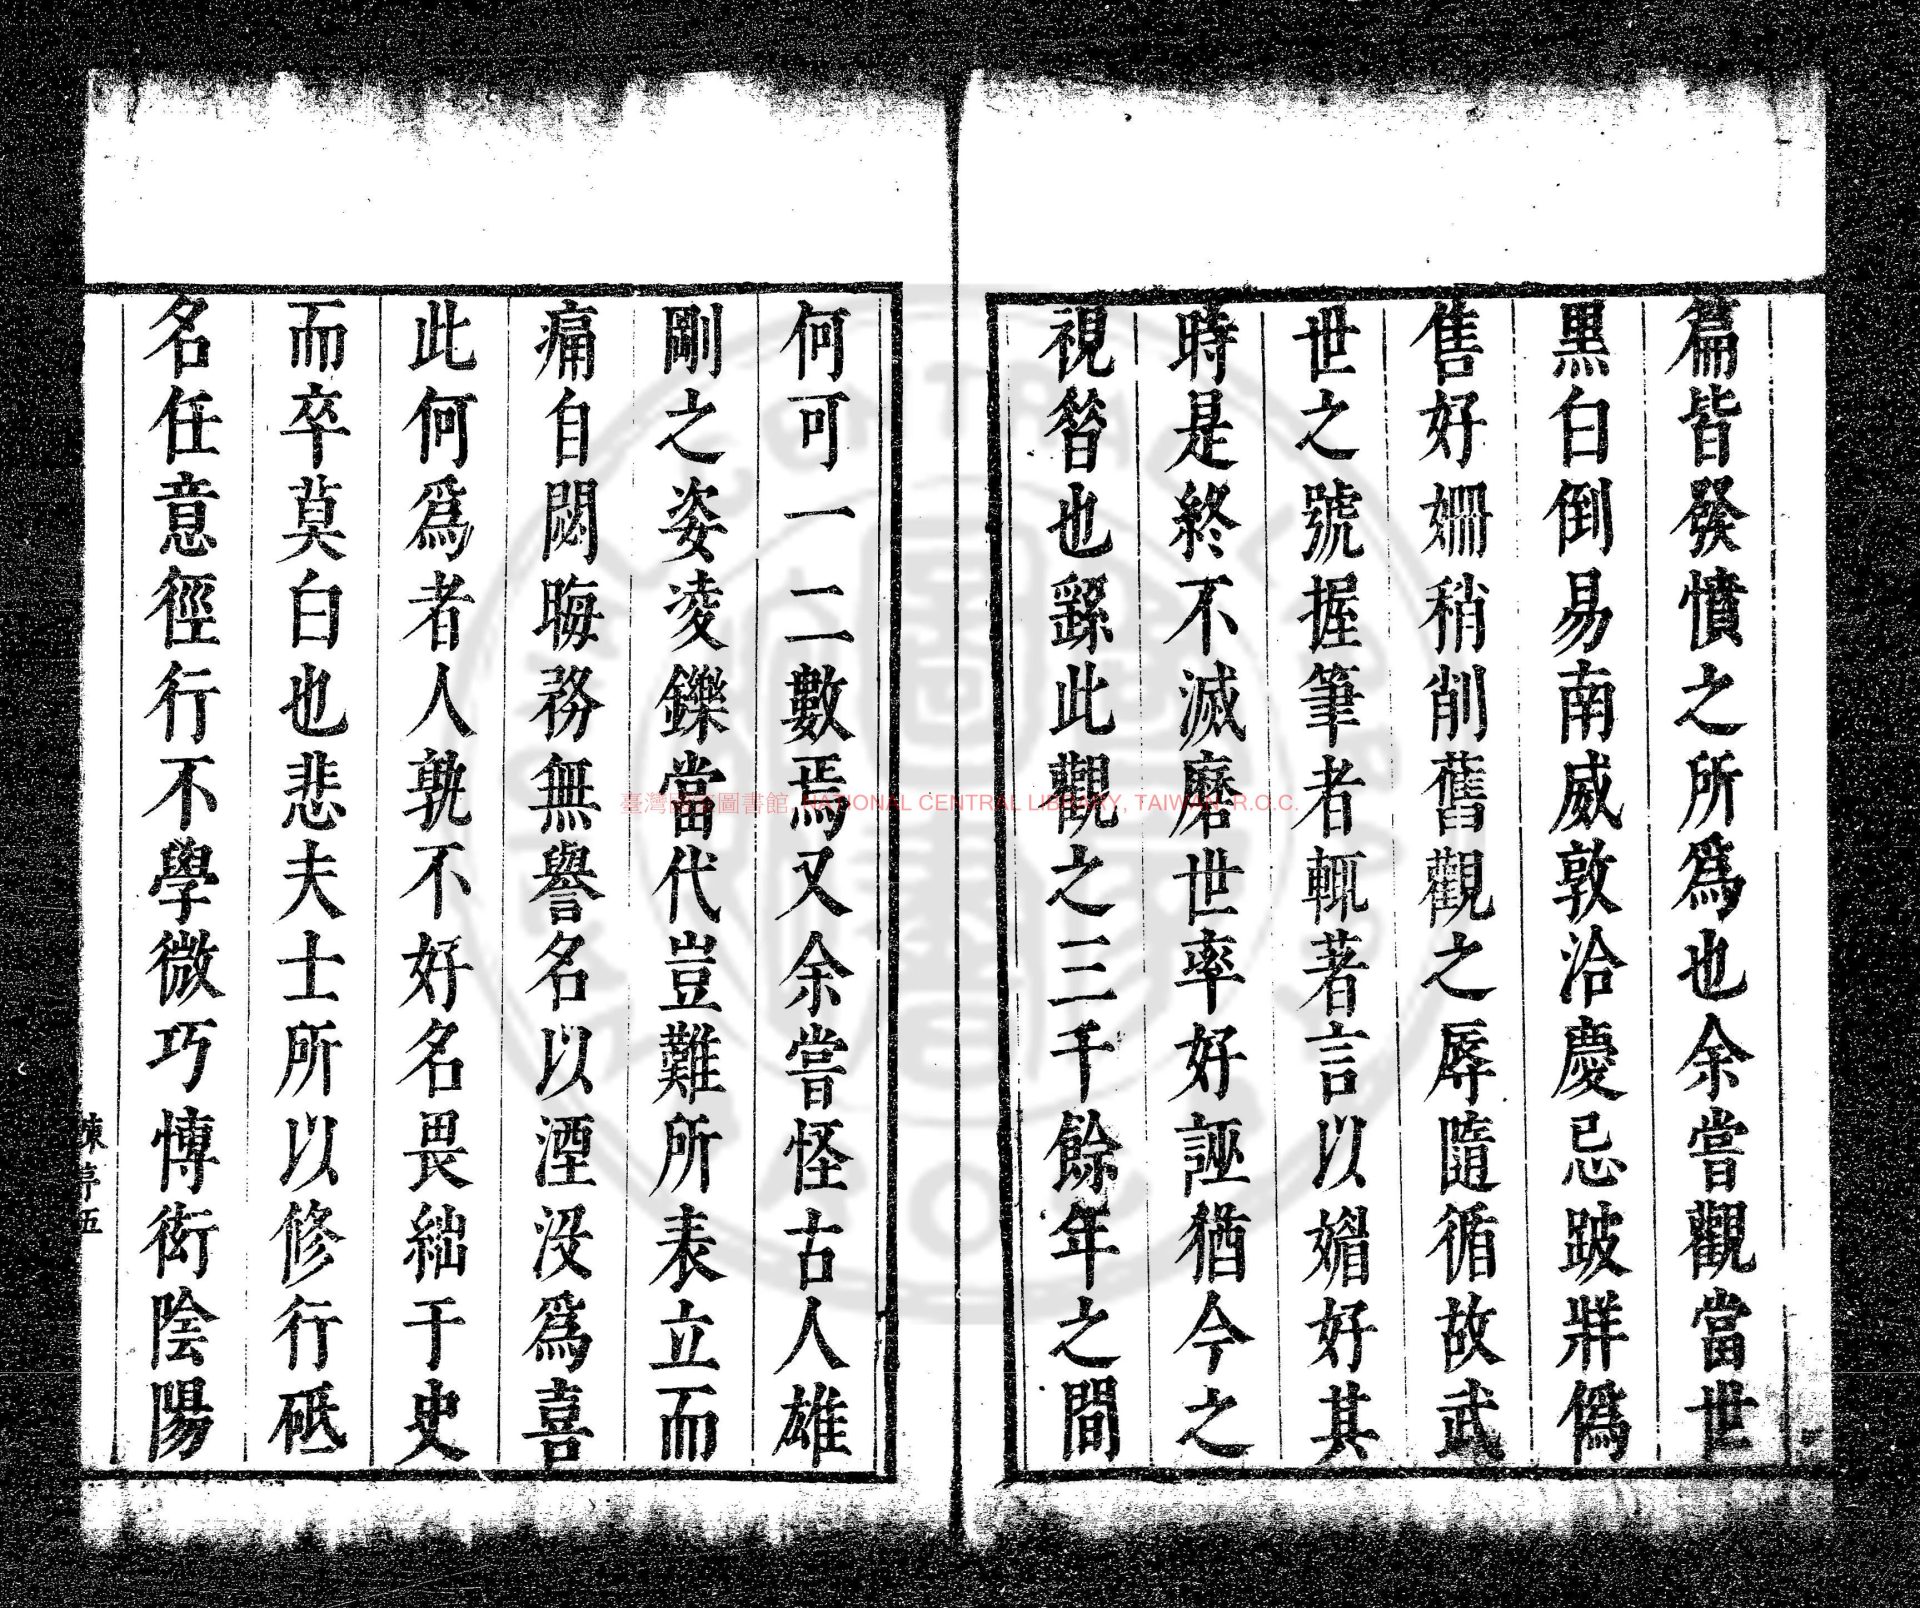 篇皆發憤之所爲也余嘗觀當世
黑白倒易南威敦洽慶忌跛牂僞
售好姍稍削舊觀之辱隨循故武
世之號握筆者輒著言以媚好其
時是終不滅磨世率好誣猶今之
視昝也繇此觀之三千餘年之間
何可一二數焉又余嘗怪古人雄
剛之姿凌鑠當代豈難所表立而
痛自閟晦務無譽名以湮没爲喜
此何爲者人孰不好名畏絀于史
而卒莫白也悲夫士所以修行砥
名任意徑行不學微巧慱衒陰陽
臺灣國家圖書館, NATIONAL CENTRAL LIBRARY, TAIWAN, R.O.C.